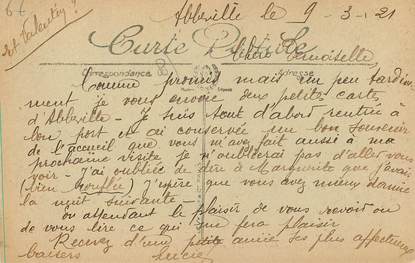 Abbeville le 9-3-21
St Valentin ?
Carte Postale
Chère Demoiselle
Correspondance Adresse
Comme promis mais un peu tardive
ment je vous envoie deux petites cartes
d'Abbeville - je suis tout d'abord rentrée à
bon port et ai conservée un bon souvenir
de l'accueil que vous m'avez fait aussi à ma
prochaine visite je n'oublierai pas d'aller vous
voir - J'ai oubliée de dire à Marguerite que j'avais
bien J'espère que vous avez mieux dormie
la nuit suivante -
en attendant le plaisir de vous revoir ou
de vous lire ce qui me fera plaisir
Recevez d'une petite amie ses plus affectueux
baisers Lucie